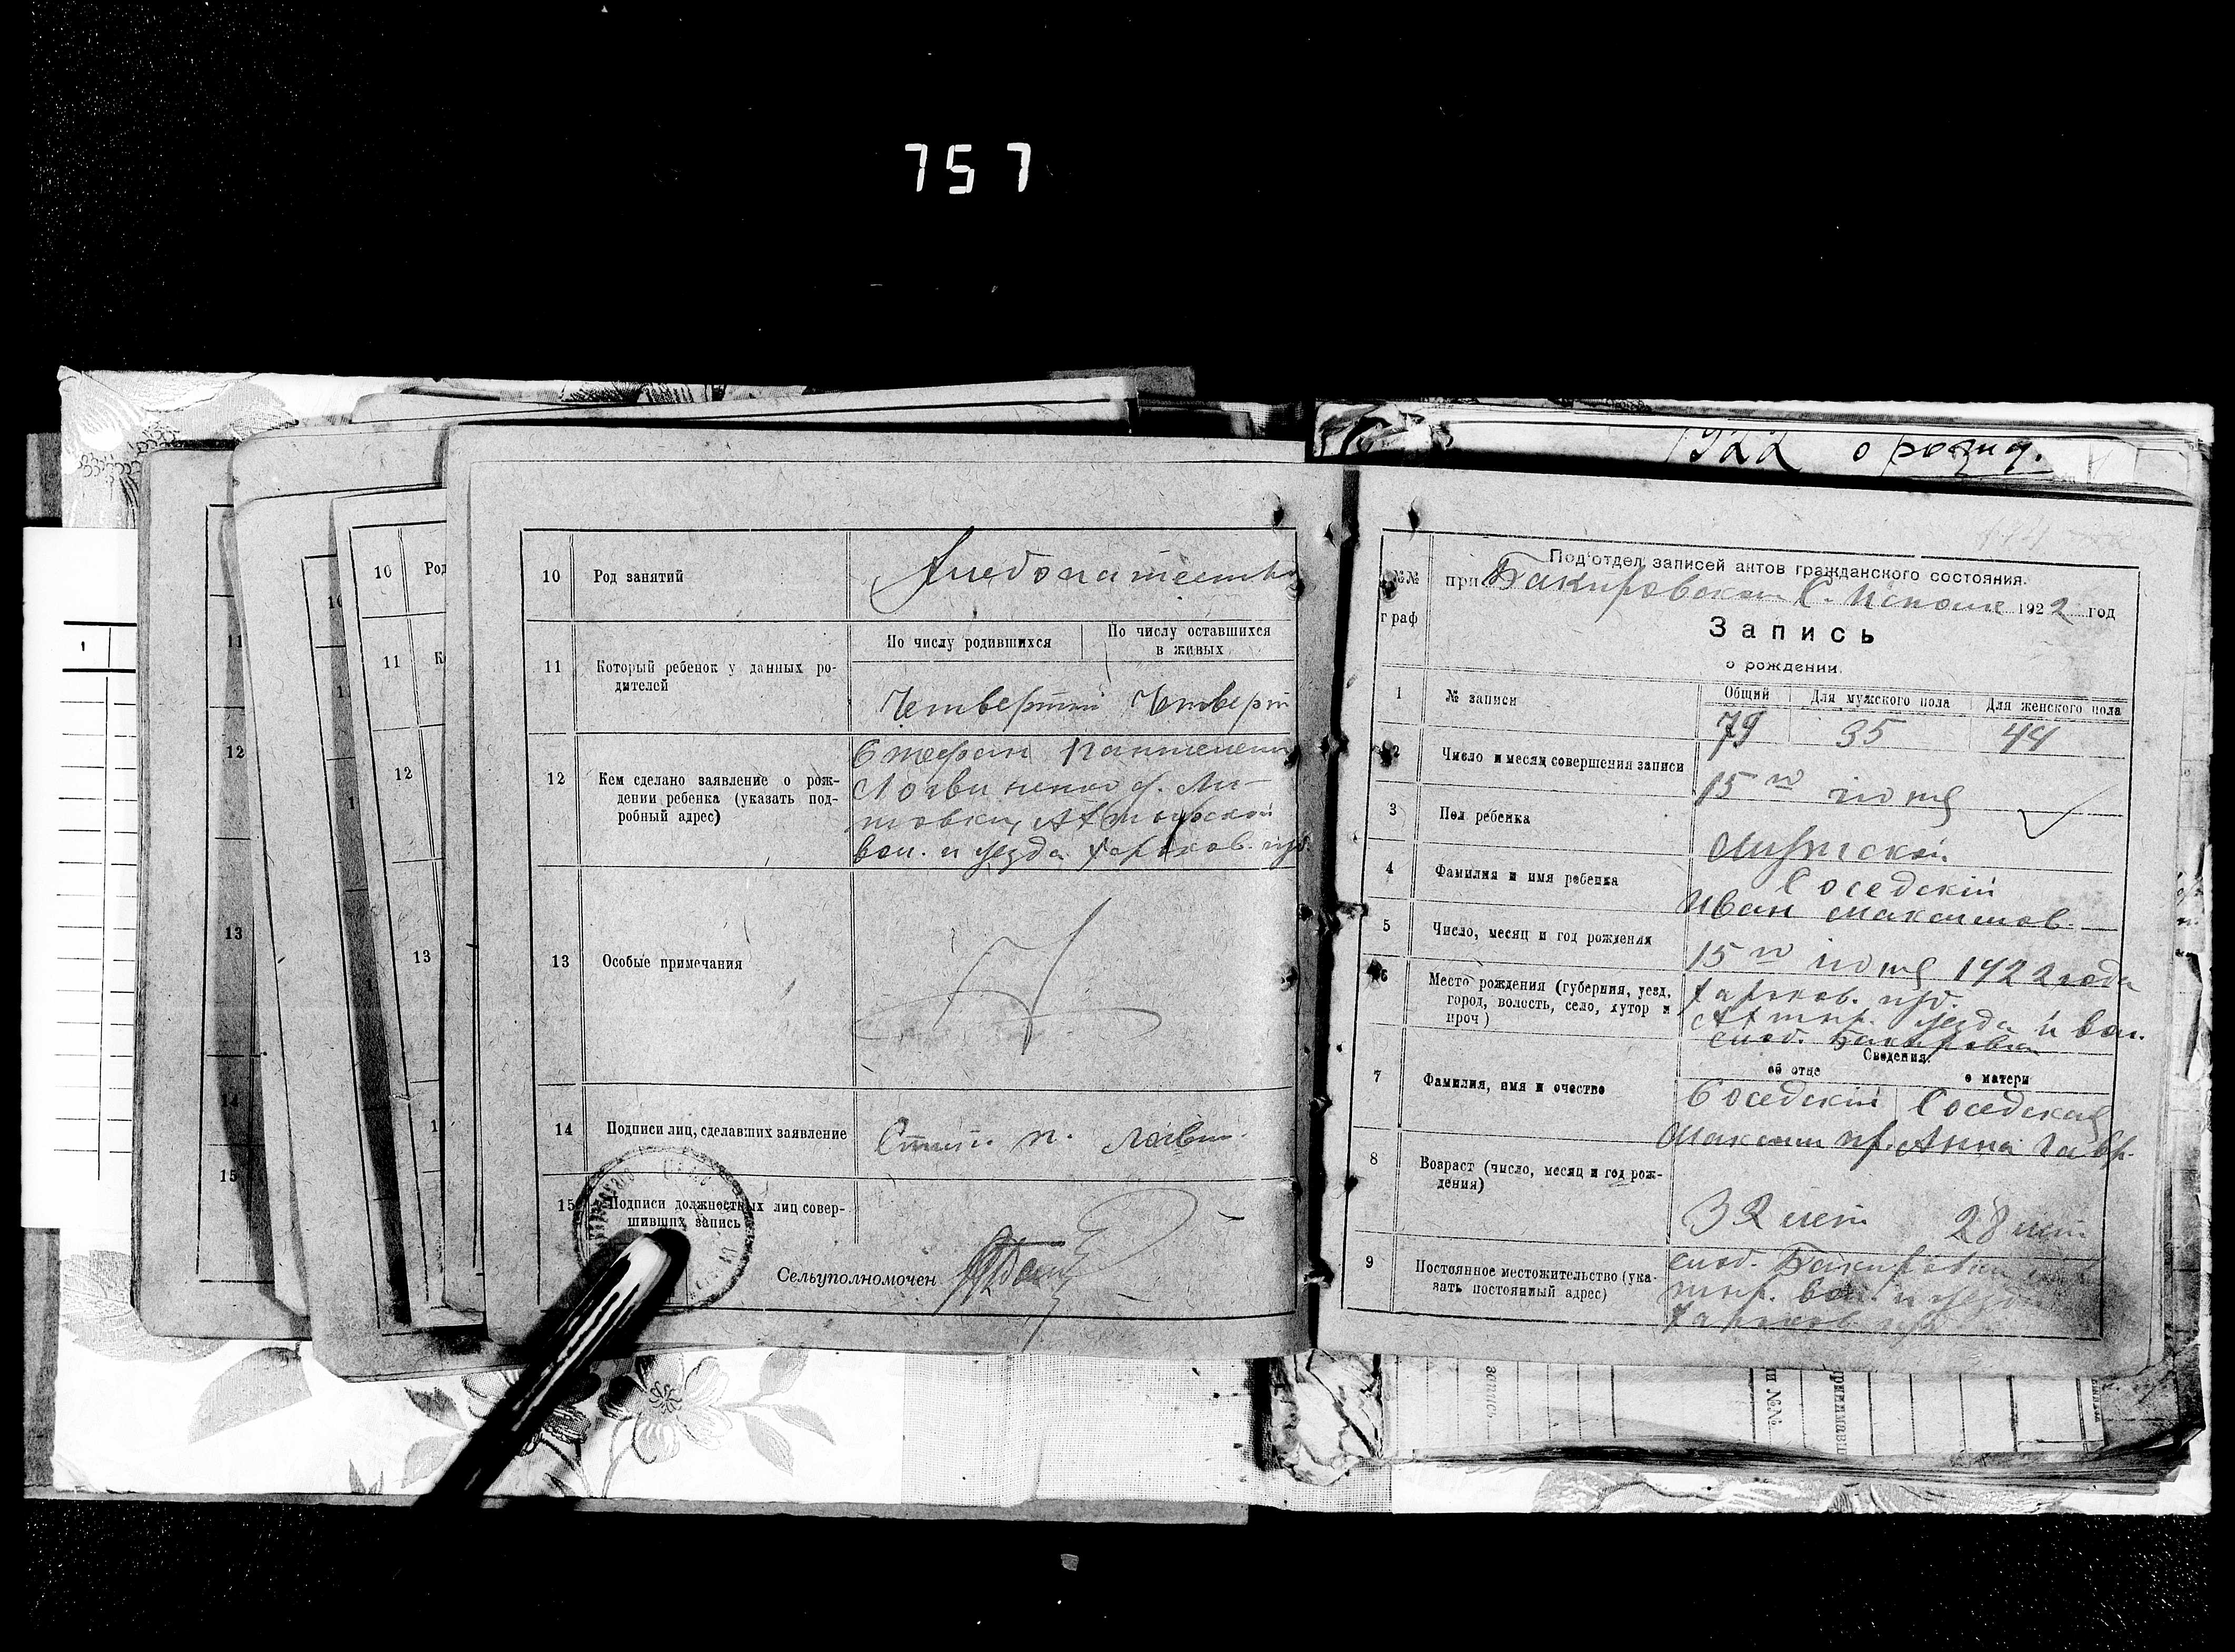 757
1922 о рожд.
10 Род занятий Хлебопашество
11 Который ребенок у данных ро-
дителей
По числу родившихся
По числу оставшихся
в живых
Четвертый Четверт
12 Кем сделано заявление о рож-
дении ребенка (указать под-
робный адрес)
Стефан Пантелеем
Логвиненко с. Ли-
товки, Ахтырской
вол. и уезда Харьков. губ.
13 Особые примечания
14 Подписи лиц, сделавших заявление
15 Подписи должностных лиц совер-
шивших запись
Сельуполномочен
10 Род
11
12
13
10
11
12
13
14
15
Под'отдел записей актов гражданского состояния.
при Бакировском С. Исполк 1922 год
№№
граф
Запись
о рождении.
1 № записи
Общий Для мужского пола Для женского пола
79 35 44
2 Число и месяц совершения записи
15го июля
3 Пол ребенка
Мужской
4 Фамилия и имя ребенка
Соседский
Иван Максимов.
5 Число, месяц и год рождения
15го июля 1922 года
6 Место рождения (губерния, уезд,
город, волость, село, хутор и
проч)
Харьков. губ.
Ахтыр. уезда и вол.
слоб. Бакировка
Сведения:
об отце о матери
7 Фамилия, имя и очество
Соседский Соседская
Максим Анна Гавр.
8 Возраст (число, месяц и год рож-
дения)
32 лет 28 лет
9 Постоянное местожительство (ука-
зать постоянный адрес)
слоб. Бакировки
тыр. вол. и уезда
Харьков губ
запись